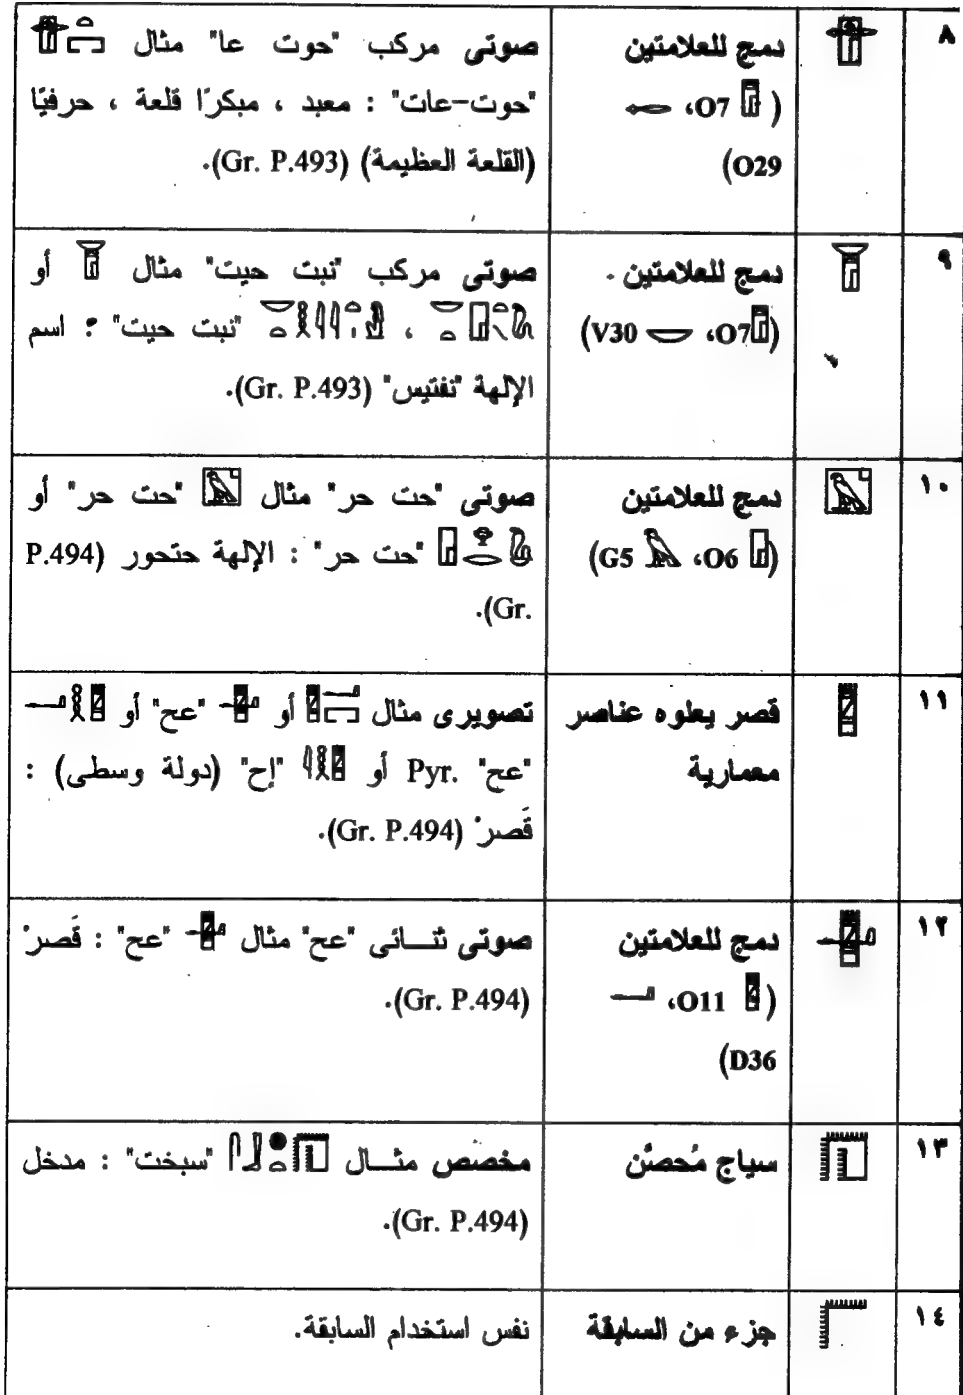 ٨ دمج للعلامتين صوتى مركب "حوت عا" مثال
( O7، "حوت-عات" : معبد ، مبكرًا قلعة ، حرفيًا
O29) (القلعة العظيمة) (Gr. P.493).
٩ دمج للعلامتين صوتى مركب "نبت حيت" مثال أو
(O7، V30) ، "نبت حيت" : اسم
الإلهة "نفتيس" (Gr. P.493).
١٠ دمج للعلامتين صوتى "حت حر" مثال "حت حر" أو
(O6، G5) "حت حر" : الإلهة حتحور (P.494
Gr.).
١١ قصر يعلوه عناصر تصويرى مثال أو "عح" أو
معمارية "عح" Pyr. أو "إح" (دولة وسطى) :
قَصرْ (Gr. P.494).
١٢ دمج للعلامتين صوتى ثنائى "عح" مثال "عح" : قَصرْ
( O11، (Gr. P.494).
D36)
١٣ سياج مُحصَّن مخصص مثال "سبخت" : مدخل
(Gr. P.494).
١٤ جزء من السابقة نفس استخدام السابقة.